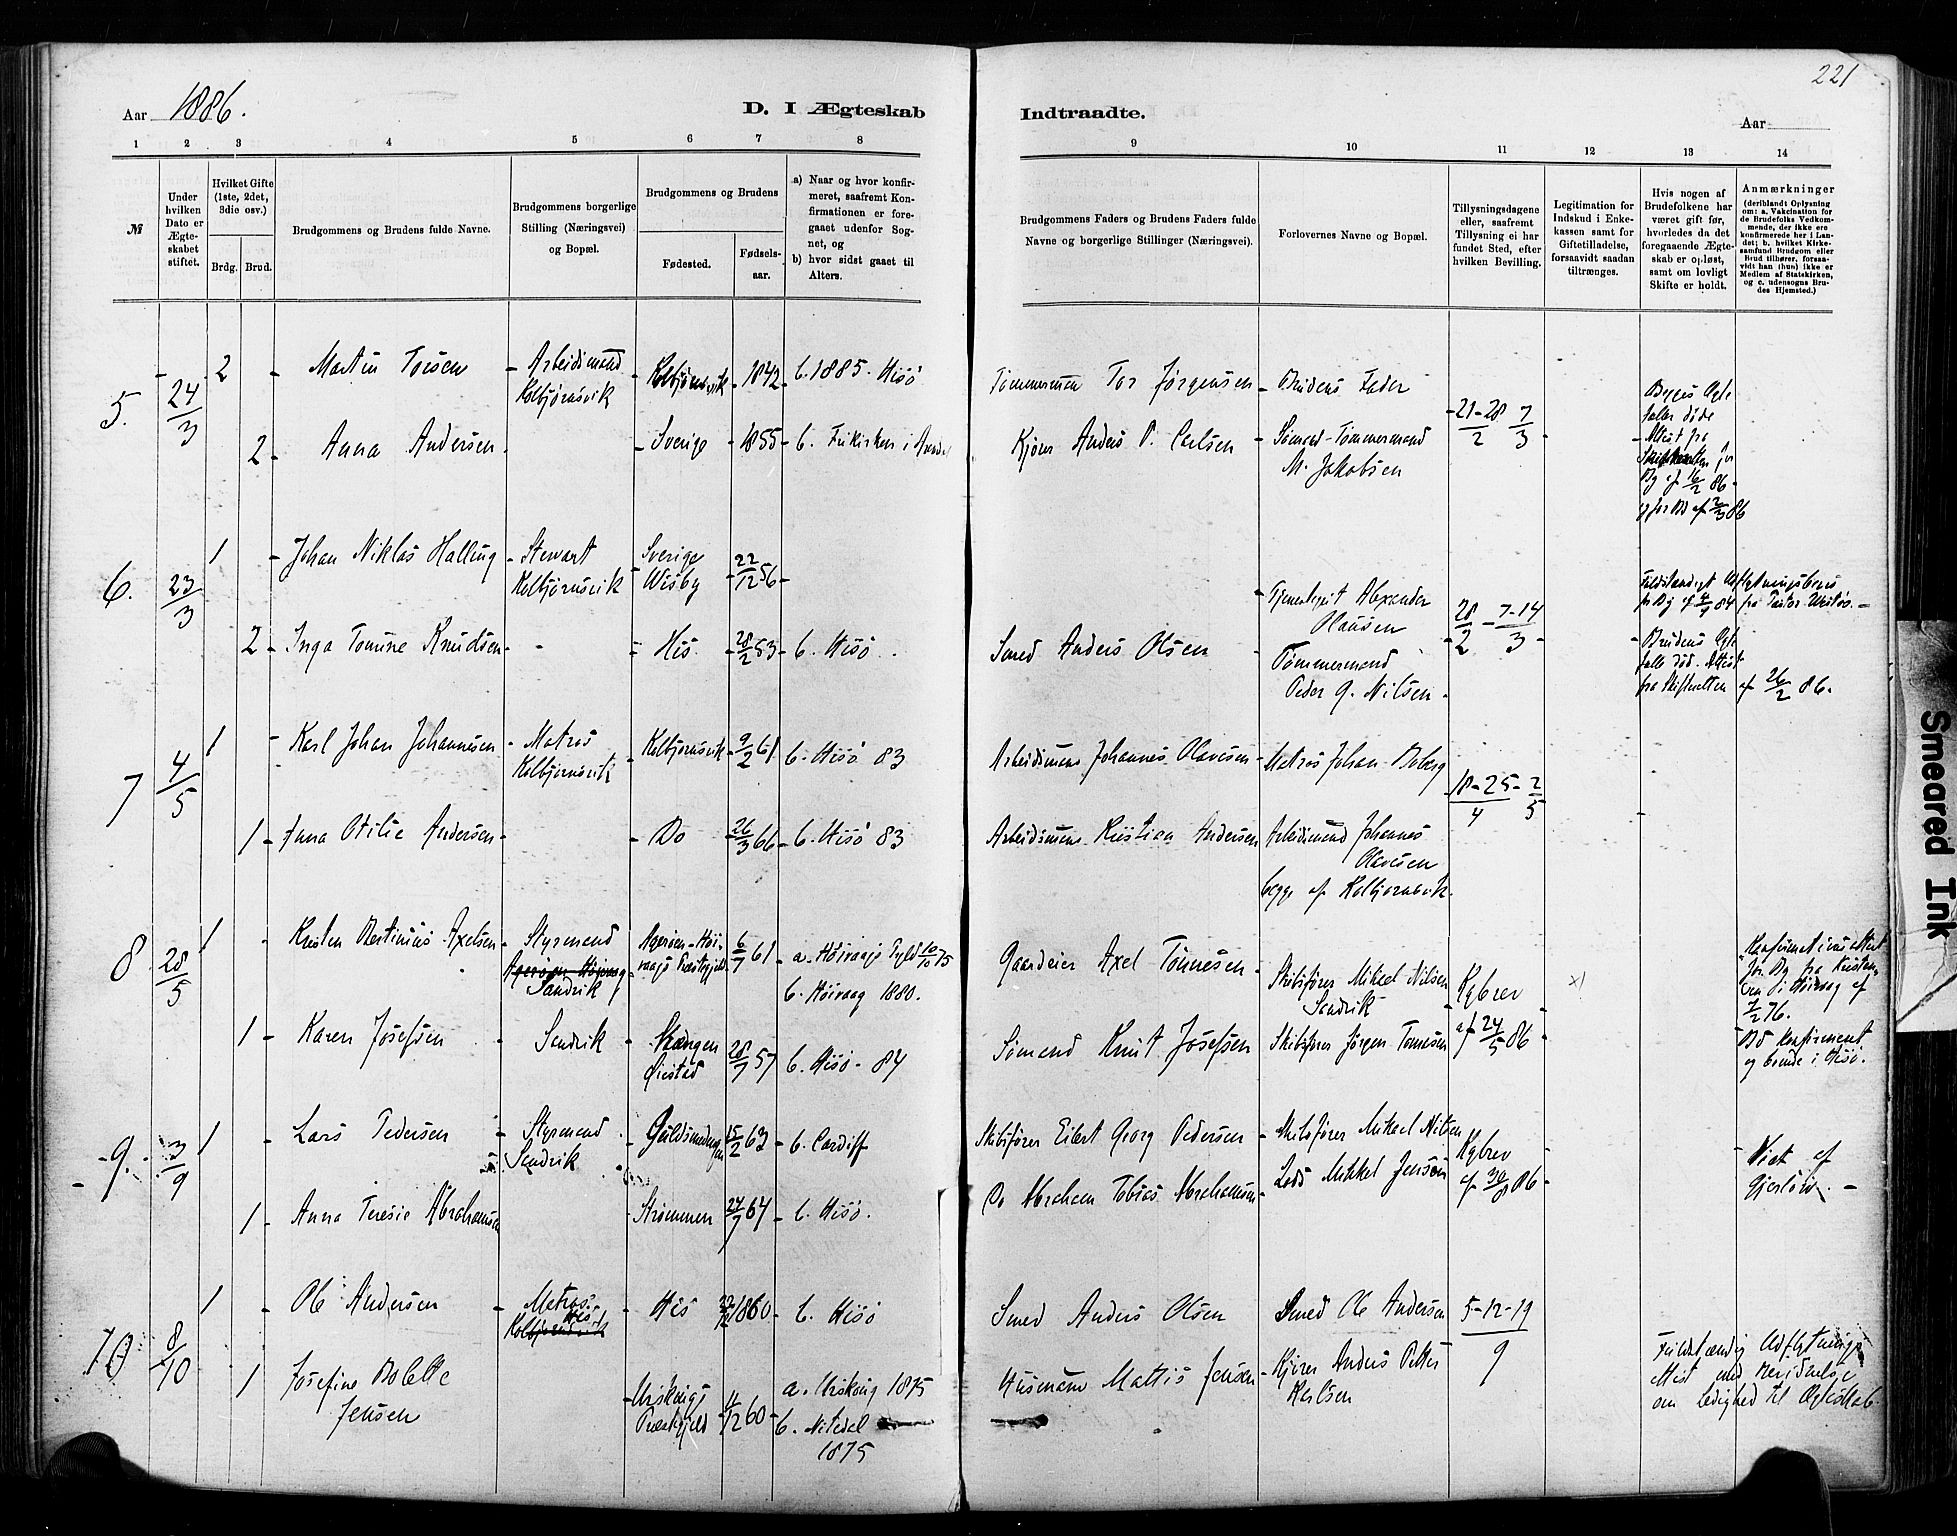 221
Aar 1886.
D. I Ægteskab
Indtraadte.
Aar
1 2 3 4 5 6 7 8
9 10 11 12 13 14
№
Under hvilken Dato er Ægteskabet stiftet.
Hvilket Gifte (1ste, 2det, 3die osv.)
Brdg. Brud.
Brudgommens og Brudens fulde Navne.
Brudgommens borgerlige Stilling (Næringsvei) og Bopæl.
Brudgommens og Brudens
Fødested.
Fødselsaar.
a) Naar og hvor konfirmeret, saafremt Konfirmationen er foregaaet udenfor Sognet, og
b) hvor sidst gaaet til Alters.
Brudgommens Faders og Brudens Faders fulde Navne og borgerlige Stillinger (Næringsvei).
Forlovernes Navne og Bopæl.
Tillysningsdagene eller, saafremt Tillysning ei har fundet Sted, efter hvilken Bevilling.
Legitimation for Indskud i Enkekassen samt for Giftetilladelse, forsaavidt saadan tiltrænges.
Hvis nogen af Brudefolkene har været gift før, hvorledes da det foregaaende Ægteskab er opløst, samt om lovligt Skifte er holdt.
Anmærkninger (deriblandt Oplysning om: a. Vakcination for de Brudefolks Vedkommende, der ikke ere konfirmerede her i Landet; b. hvilket Kirkesamfund Brudgom eller Brud tilhører, forsaavidt han (hun) ikke er Medlem af Statskirken, og c. udensogns Brudes Hjemsted.)
5. 24/3 2 Martin Torsen Arbeidsmand Kolbjørnsvik Kolbjørnsvik 1842 b. 1885. Hisö
Tømmermann Tor Jørgensen Brudens Fader 21-28/2 7/3
2 Anna Andersen Sverige 1855 b. Frikirken i Arendal
Kjører Anders P. Carlsen Sømand-Tømmermand M. Jakobsen
Begges Ægtefæller døde Attest fra Skifteretten for Bg af 16/2 86 og for Bd af 2/3 86
6. 23/3 1 Johan Niklas Halling Stewart Kolbjørnsvik Sverige Wisby 22/12 56
Alexander Olaussen 28/2 - 7-14/3
fra Pastor
2 Inga Tomine Knudsen His 28/2 53 b. Hisö
Smed Anders Olsen Tømmermand Peder G. Nilsen
Brudens Ægtefælle død. Attest fra Skifteretten af 26/2 86.
7 4/5 1 Karl Johan Johannesen Matros Kolbjørnsvik Kolbjørnsvik 9/2 61 b. Hisö 83
Arbeidsmann Johannes Olavesen Matros Johan Boberg 18-25/4 - 2/5
1 Anna Otilie Andersen Do 26/3 66 b. Hisö 83
Arbeidsmann Kristian Andersen Arbeidsmand Johannes Olavesen
begge af Kolbjørnsvik
8 28/5 1 Kristen Bertinius Axelsen Styrmand Sandvik 6/7 61 b. Höivaag 1880.
Gaardeier Axel Tønnesen Skibsfører Mikael Nilsen Sandvik Kgbrev af 24/5 86
x)
1 Karen Josefsen Sandvik Øiestad 28/7 57 b. Hisö - 84
Sømand Knut Josefsen Skibsfører Jørgen Tønnesen
Bd konfirmeret og boende i Hisö.
9. 3/9 1 Lars Pedersen Styrmand Sandvik Guldsmedengen 15/2 63 b. Cardiff
Skibsfører Eilert Georg Pedersen Skibsfører Mikael Nilsen Kgbrev af 30/8 86
Viet af Gjerløw.
1 Anna Teresie Abrahamsen Strømmen 24/7 64 b. Hisö.
Do Abraham Tobias Abrahamsen Lods Mikkel Jensen
10 8/10 1 Ole Andersen Matros His Kolbjørnsvik His 1860 b. Hisö
Smed Anders Olsen Smed Ole Andersen 5-12-19/9
1 Josefine Bolette Jensen Urskougs Præstegjeld 11/12 60 a. Urskoug 1875 b. Nitedal 1875
Husmann Mattis Jensen Kjører Anders Petter Karlsen
Fuldstændig Udflytningsattest med Beviidnelse om Ledighed til Ægteskab.
Smeared Ink